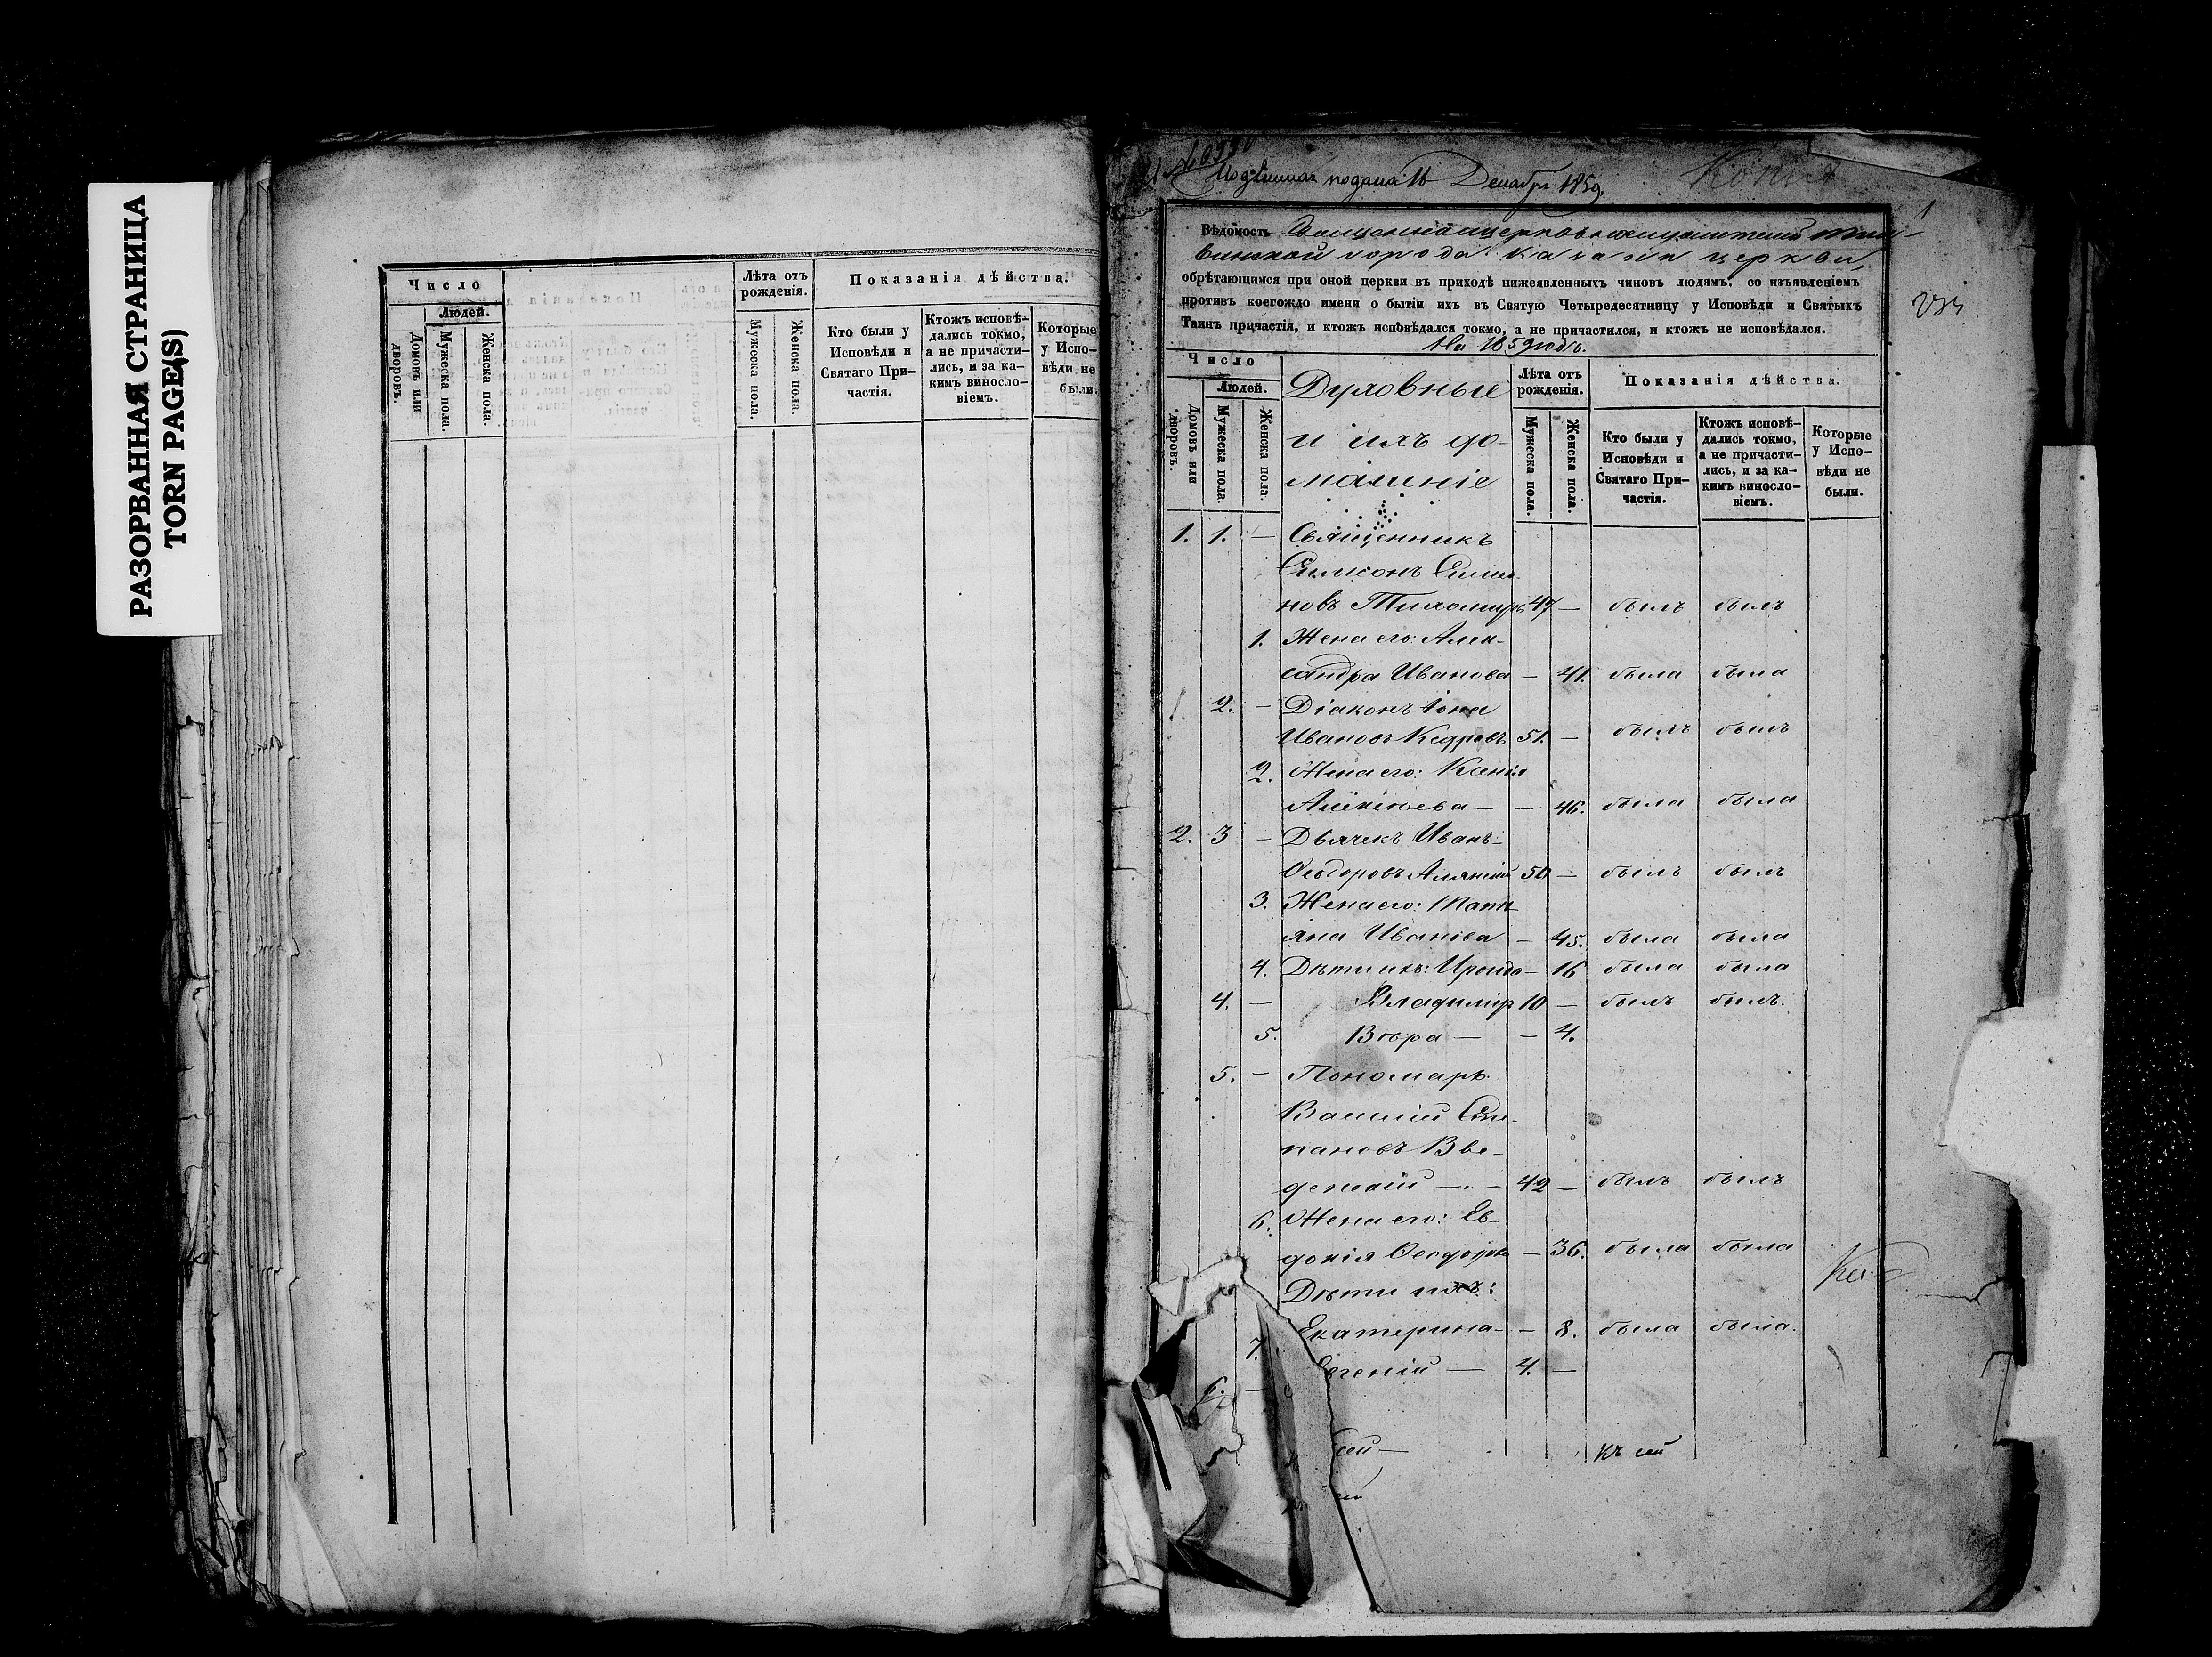 РАЗОРВАННАЯ СТРАНИЦА
TORN PAGE(S)
Число
Людей.
Домовъ или дворовъ.
Мужеска пола.
Женска пола.
Лѣта отъ рожденія.
Мужеска пола.
Женска пола.
Показанія дѣйства.
Кто были у Исповѣди и Святаго Причастія.
Ктожъ исповѣ-
дались токмо,
а не причасти-
лись, и за ка-
кимъ виносло-
віемъ.
Которые
у Испо-
вѣди не
были.
подана 16 Декабря 1859.
Копія
1
Вѣдомость Священноцерковнослужителей Тих-
винской города Казани церкви,
обрѣтающимся при оной церкви въ приходѣ нижеявленныхъ чиновъ людямъ, со изъявленіемъ
противъ коегождо имени о бытіи ихъ въ Святую Четыредесятницу у Исповѣди и Святыхъ
Таинъ причастія, и ктожъ исповѣдался токмо, а не причастился, и ктожъ не исповѣдался.
На 1859 годъ.
Число
Людей.
Домовъ или дворовъ.
Мужеска пола.
Женска пола.
Духовные
и ихъ до-
машніе
Лѣта отъ рожденія.
Мужеска пола.
Женска пола.
Показанія дѣйства.
Кто были у
Исповѣди и
Святаго При-
частія.
Ктожъ исповѣ-
дались токмо,
а не причасти-
лись, и за ка-
кимъ виносло-
віемъ.
Которые
у Испо-
вѣди не
были.
1. 1. — Священникъ
Симеонъ Симео-
новъ Тихомировъ 47 — былъ былъ
1. Жена его: Алек-
сандра Иванова — 41. была была
1. 2. — Діаконъ Іона
Ивановъ Кедровъ 51. — былъ былъ
2. Жена его: Ксенія
Алексіева — — 46. была была
2. 3 — Дьячекъ Иванъ
Ѳеодоровъ 50 — былъ былъ
3. Жена его: Тать-
яна Иванова — 45. была была
4. Дѣти ихъ: Ираида — 16 была была
4. — Владиміръ 10 — былъ былъ.
5. Вѣра — — 4.
5. — Пономарь
Василій Сте-
пановъ Вве-
денскій — 42 — былъ былъ
6. Жена его: Ев-
докія Ѳеодорова — 36. была была
Дѣти ихъ:
7. Екатерина — — 8. была была.
6. — Евгеній — 4. —
къ сей